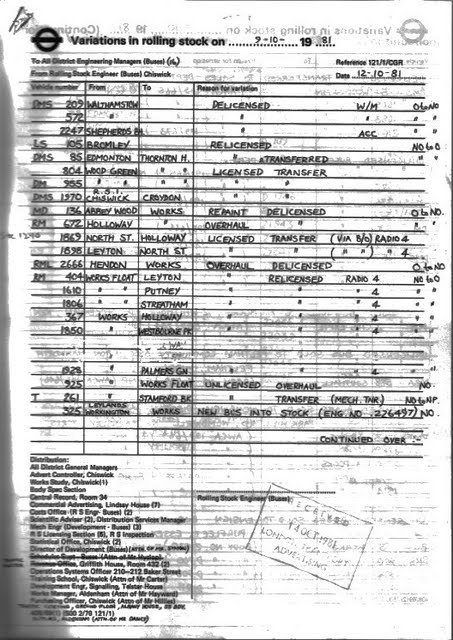 Variations in rolling stock on 9-10- 19 81
To All District Engineering Managers (Bus) (14)
Reference 121/1/CGR
From Rolling Stock Engineer (Buses) Chiswick
Date 12-10-81
Vehicle number From To Reason for variation
DMS 209 WALTHAMSTOW DELICENSED W/M O to NO
572 " " " "
2247 SHEPHERDS B. " ACC " "
LS 105 BROMLEY RELICENSED NO to O
DMS 85 EDMONTON THORNTON H. " & TRANSFERRED " "
804 WOOD GREEN " " LICENSED TRANSFER
DM 955 " " " " " "
DMS 1970 R.S.I. CHISWICK CROYDON " "
MD 136 ABBEY WOOD WORKS REPAINT DELICENSED O to NO.
RM 672 HOLLOWAY " OVERHAUL " " "
1869 NORTH ST. HOLLOWAY LICENSED TRANSFER (VIA B/O) RADIO 4
1898 LEYTON NORTH ST " " ( " " ) " 4
RML 2666 HENDON WORKS OVERHAUL DELICENSED O to NO
RM 404 WORKS FLOAT LEYTON " RELICENSED RADIO 4 NO to O
1610 " " PUTNEY " " " 4 " "
1806 " " STREATHAM " " " 4 " "
367 WORKS HOLLOWAY " " " 4 " "
1850 " WESTBOURNE PK " " " 4 " "
1928 " PALMERS GN " " " 4 " "
925 " WORKS FLOAT UNLICENSED OVERHAUL NO.
T 261 " STAMFORD BK " TRANSFER (MECH. TNR.) NO to NP.
325 LEYLANDS WORKINGTON WORKS NEW BUS INTO STOCK (ENG NO 226497) NO.
CONTINUED OVER :-
Distribution:
All District General Managers
Advert Controller, Chiswick
Works Study, Chiswick (1)
Body Spec Section
Central Record, Room 34
Commercial Advertising, Lindsay House (7)
Rolling Stock Engineer (Buses)
Costs Office - (R S Engr- Buses) (2)
Scientific Adviser (2), Distribution Services Manager
Mech Engr (Development - Buses) (3)
R S Licensing Section (8), R S Inspection
Statistical Office, Chiswick (2)
Director of Development (Buses)
Revenue Office, Griffith House, Room 432 (2)
Operations Systems Officer 210-212 Baker Street
Training School, Chiswick (Attn of Mr Carter)
Development Engr, Signalling, Telstar House
Works Manager, Aldenham (Attn of Mr Hayward)
Purchasing Officer, Chiswick (Attn of Mr Hillier)
LONDON
ADVERTISING